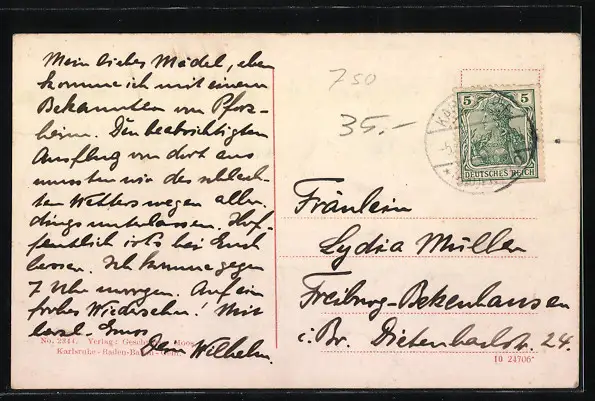 Mein liebes Mädel, eben
komme ich mit einem
Bekannten von Pforz-
heim. Den beabsichtigten
Ausflug von dort aus
mussten wir des schlech-
ten Wetters wegen aller-
dings unterlassen. Hof-
fentlich ists bei Euch
besser. Ich komme gegen
7 Uhr morgen. Auf ein
frohes Wiedersehen! Mit
herzl. Gruss
Dein Wilhelm.
No. 2314. Verlag: Moos
Karlsruhe-Baden-Baden
750
35.-
5 5
DEUTSCHES REICH
Fräulein
Lydia Müller
Freiburg-Bekenhausen
i. Br. Dietenbachstr. 24.
10 24706